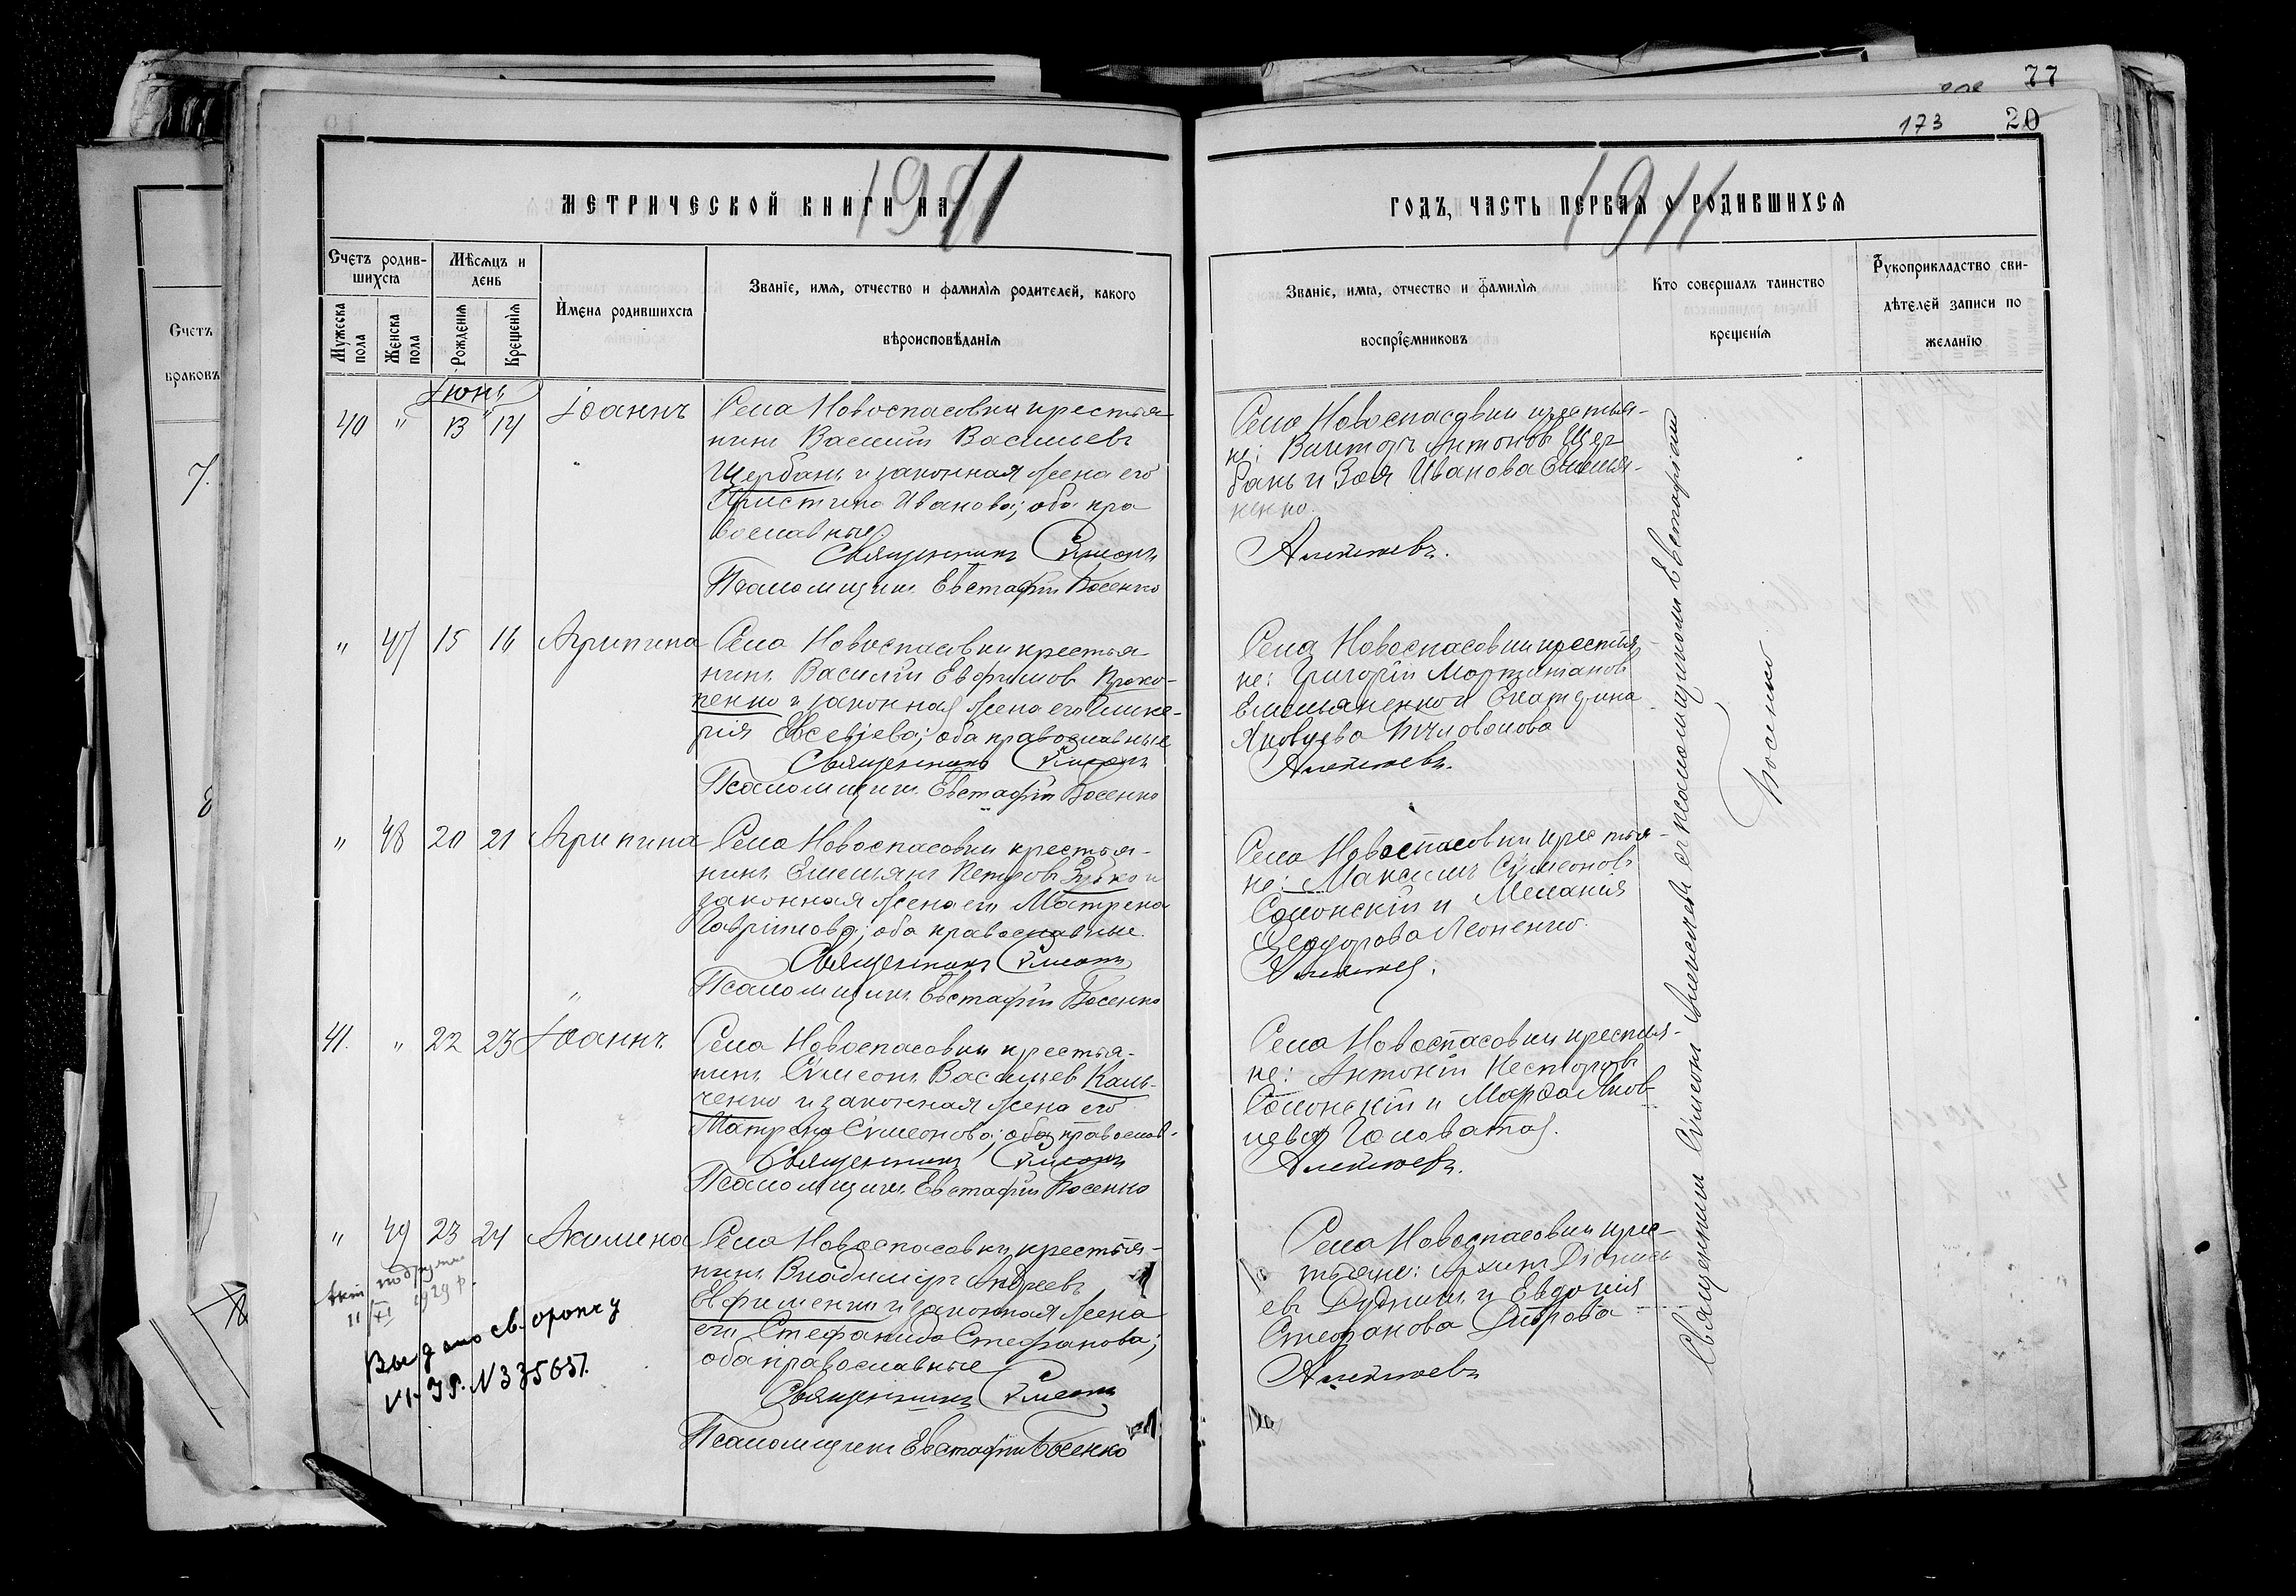 77
173 20
МЕТРИЧЕСКОЙ КНИГИ НА 1911
ГОДЪ, ЧАСТЬ ПЕРВАЯ О РОДИВШИХСЯ
1911
Счетъ родив-
шихся
Мѣсяцъ и
день
Мужеска пола
Женска пола
Рожденія
Крещенія
Имена родившихся
Званіе, имя, отчество и фамилія родителей, какого
вѣроисповѣданія
Званіе, имя, отчество и фамилія
воспріемниковъ
Кто совершалъ таинство
крещенія
Рукоприкладство сви-
дѣтелей записи по
желанію
Счетъ
браковъ
7.
8
Іюнь
40 " 13 14 Іоаннъ
Села Новоспасовки крестья-
нинъ Василій Васильевъ
Щербань и законная жена его
Христина Иванова; оба пра
вославные
Священникъ Симеонъ
Псаломщикъ Евстафій Косенко
Села Новоспасовки крестья-
не: Викторъ Антоновъ Щер
бань и Зоя Иванова Емелья-
ненко.
Алексѣевъ.
" 47 15 16 Агрипина
Села Новоспасовки крестья-
нинъ Василій Евфимовъ Проко-
пенко и законная жена его Глике-
рія Евсевіева; оба православные
Священникъ Симеонъ
Псаломщикъ Евстафій Косенко
Села Новоспасовки крестья-
не: Григорій
Емельяненко и Екатерина
Яковлева
Алексѣевъ.
" 48 20 21 Агрипина
Села Новоспасовки крестья-
нинъ Емельянъ Петровъ Зубко и
законная жена его Матрена
Гавріилова; оба православные.
Священникъ Симеонъ
Псаломщикъ Евстафій Косенко
Села Новоспасовки крестья-
не: Максимъ Сѵмеоновъ
Солонскій и Меланія
Ѳеодорова Леоненко.
Алексѣев.
41. " 22 23 Іоаннъ
Села Новоспасовки крестья-
нинъ Сѵмеонъ Васильевъ Каль-
ченко и законная жена его
Матрена Сѵмеонова; оба православ.
Священникъ Симеонъ
Псаломщикъ Евстафій Косенко
Села Новоспасовки крестья-
не: Антоній Несторовъ
Солонскій и Марѳа Яков
лева Головатая.
Алексѣевъ.
" 49 23 24 Акилина
Села Новоспасовки крестья-
нинъ Владиміръ Андреевъ
Евфименко и законная жена
его Стефанида Стефанова;
оба православные
Священникъ Симеонъ
Псаломщикъ Евстафій Косенко
Села Новоспасовки крес-
тьяне: Діонисі
евъ Дудникъ и Евдокія
Стефанова
Алексѣевъ
1929 р.
Выдано
N 335657.
Священникъ Сѵмеонъ Алексѣевъ съ псаломщикомъ Евстафіемъ
Косенко